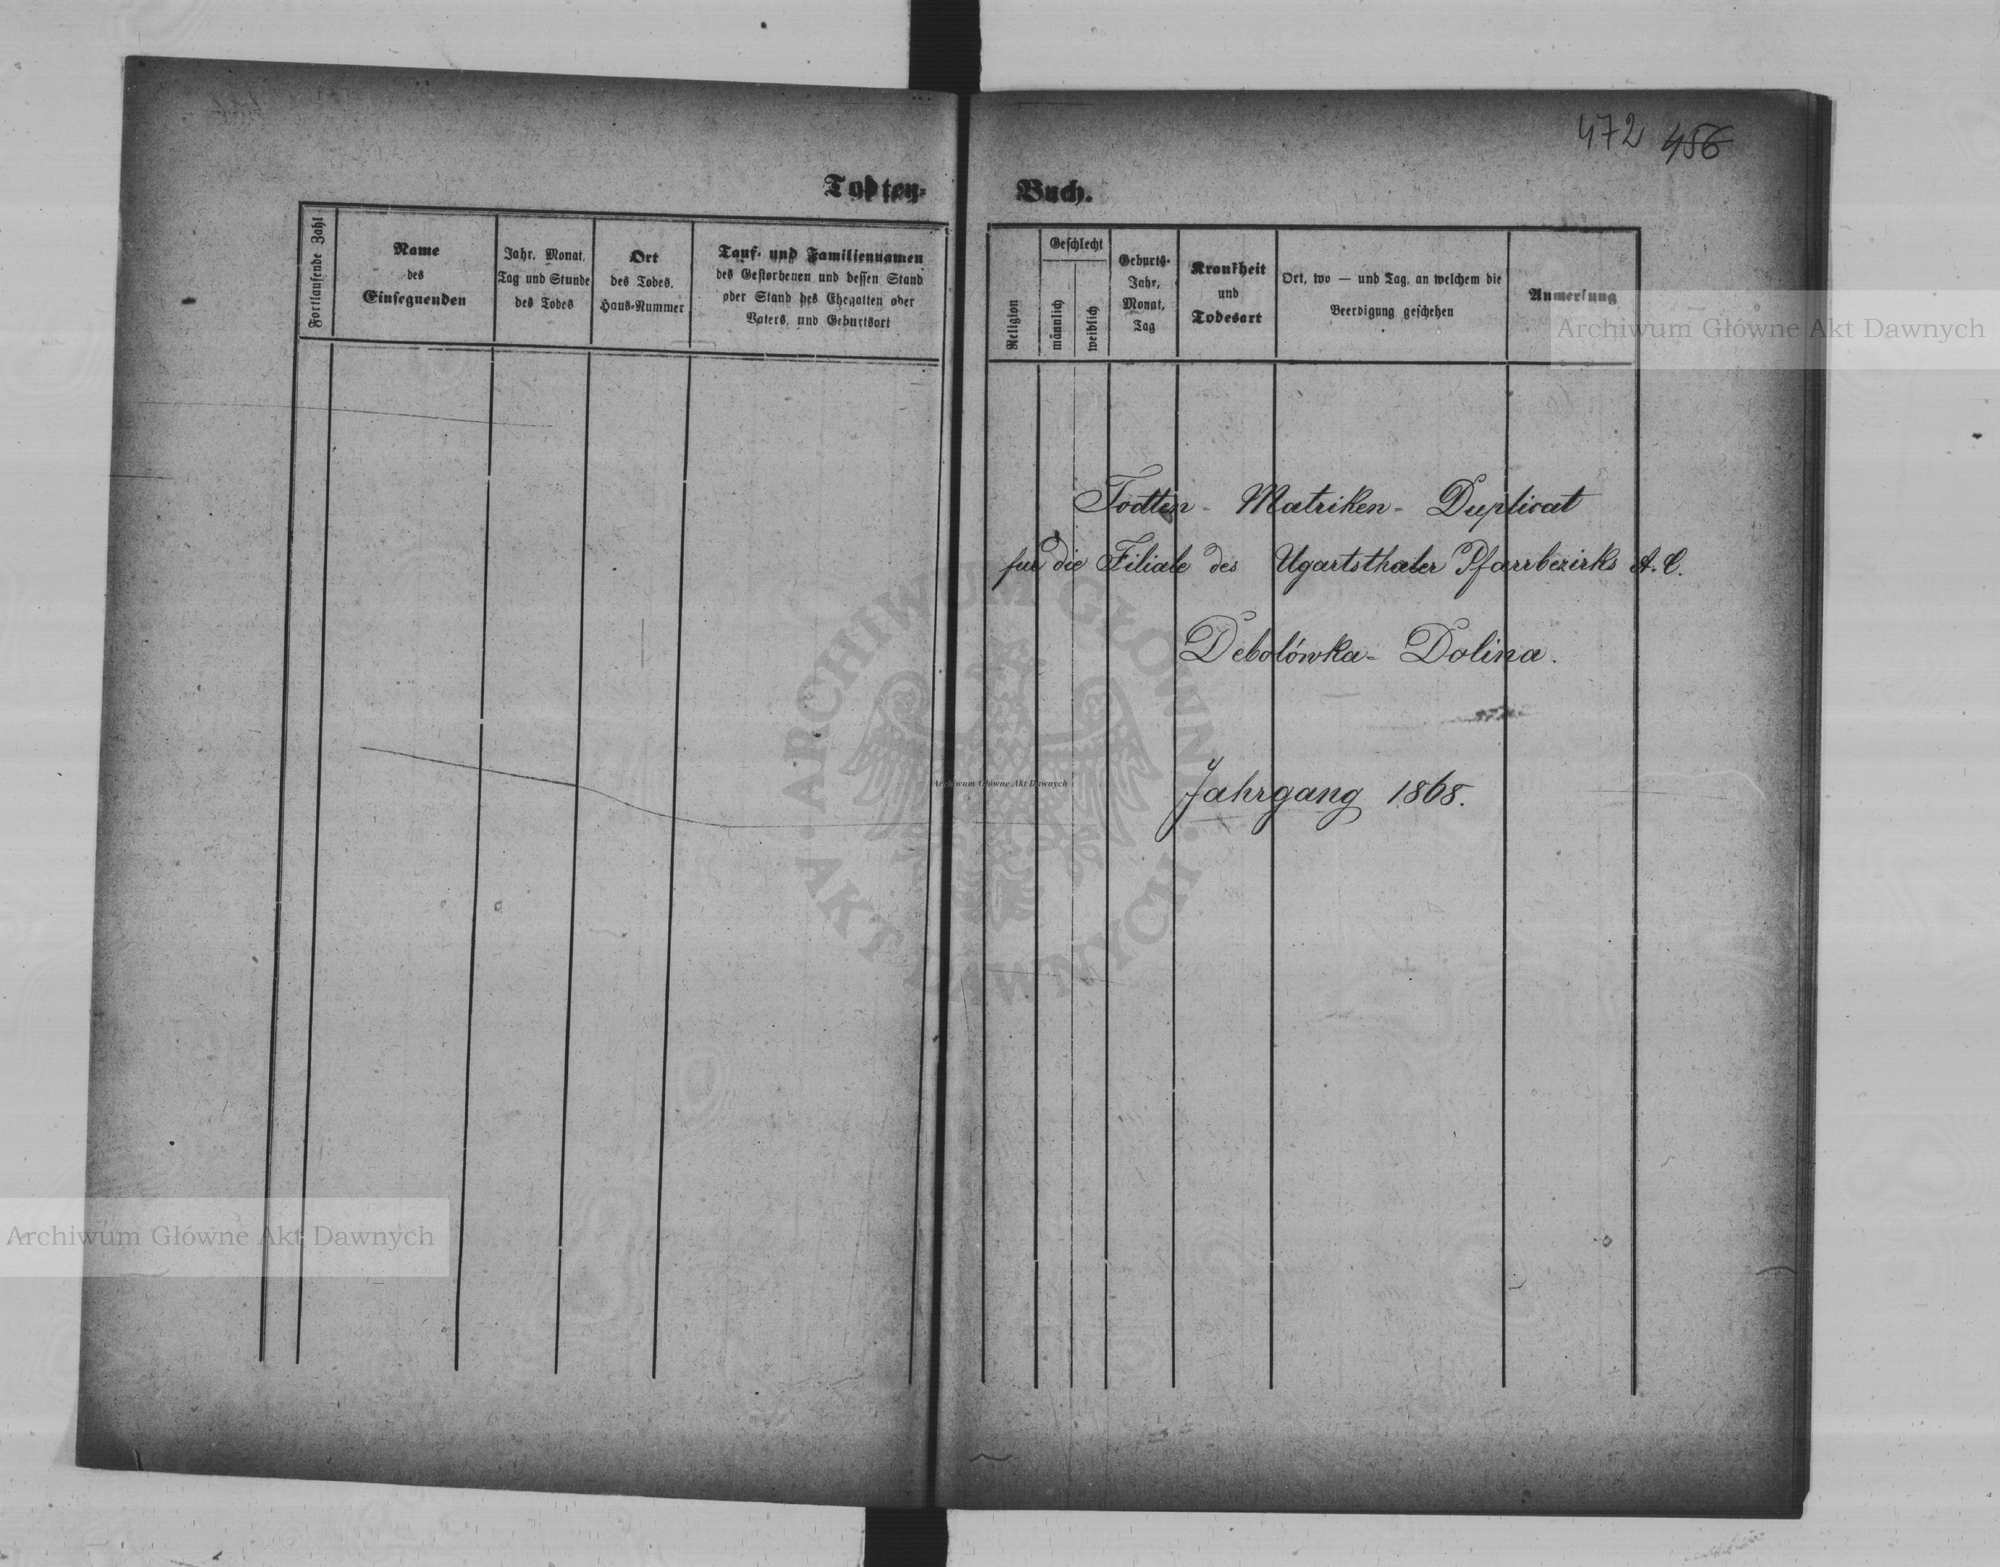 472 456
Todten-
Buch.
Fortlaufende Zahl
Name
des
Einsegnenden
Jahr, Monat,
Tag und Stunde
des Todes
Ort
des Todes,
Haus-Nummer
Tauf- und Familiennamen
des Gestorbenen und dessen Stand
oder Stand des Ehegatten oder
Vaters, und Geburtsort
Religion
Geschlecht
männlich
weiblich
Geburts-
Jahr,
Monat,
Tag
Krankheit
und
Todesart
Ort, wo — und Tag, an welchem die
Beerdigung geschehen
Anmerkung
Archiwum Główne Akt Dawnych
Todten - Matriken - Duplicat
fur die Filiale des Ugartsthaler Pfarrbezirks A. C.
Debolówka - Dolina.
Jahrgang 1868.
ARCHIWUM GŁÓWNE AKT DAWNYCH
Archiwum Główne Akt Dawnych
Archiwum Główne Akt Dawnych